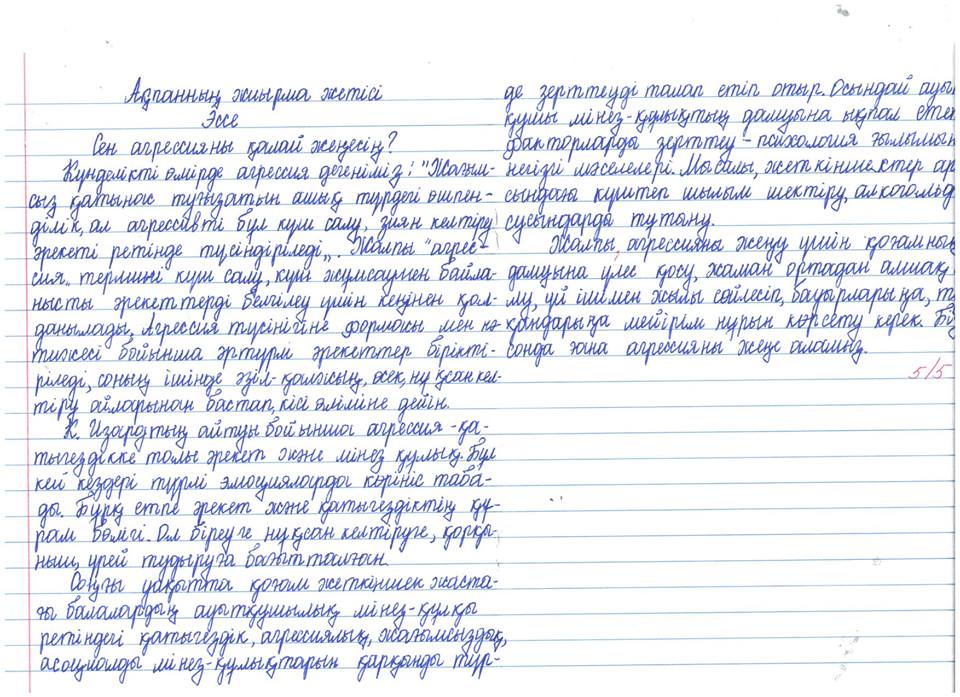 Ақпанның жиырма жетісі
Эссе
Сен агрессияны қалай жеңесің?
Күнделікті өмірде агрессия дегеніміз: "Жағым-
сыз қатынас туғызатын ашық түрдегі өшпен-
ділік, ал агрессивті бұл күш салу, зиян келтіру
әрекеті ретінде түсіндіріледі„. Жалпы "агрес-
сия„ термині күш салу, күш жұмсаумен байла-
нысты әрекеттерді белгілеу үшін кеңінен қол-
данылады. Агрессия түсінігіне формасы мен нә-
тижесі бойынша әртүрлі әрекеттер бірікті-
ріледі, соның ішінде әзіл-қалжың, өсек, нұқсан кел-
тіру ойларынан бастап, кісі өліміне дейін.
К. Изардтың айтуы бойынша агрессия - қа-
тыгездікке толы әрекет және мінез құлық. Бұл
кей кездері түрлі эмоцияларда көрініс таба-
ды. Бұрқ етпе әрекет және қатыгездіктің құ-
рам бөлігі. Ол біреуге нұқсан келтіруге, қорқы-
ныш, үрей тудыруға бағытталған.
Соңғы уақытта қоғам жеткіншек жаста-
ғы балалардың ауытқушылық мінез-құлқы
ретіндегі қатыгездік, агрессиялық, жағымсыздық,
асоциалды мінез-құлықтарын қарқынды түр-
де зерттеуді талап етіп отыр. Осындай ауы
құшы мінез-құлықтың дамуына ықпал етет
факторларда зерттеу - психология ғылымын
негізгі мәселелері. Мысалы, жеткіншектер ар
сындағы күштеп шылым шектіру, алкогольд
сусындарда тұтыну.
Жалпы, агрессияны жеңу үшін қоғамның
дамуына үлес қосу, жаман ортадан алшақ
му, үй ішімен жылы сөйлесіп, бауырларыңа, ту
қандарыңа мейірім нұрын көрсету керек. Бі
сонда ғана агрессияны жеңе аламыз.
5/5